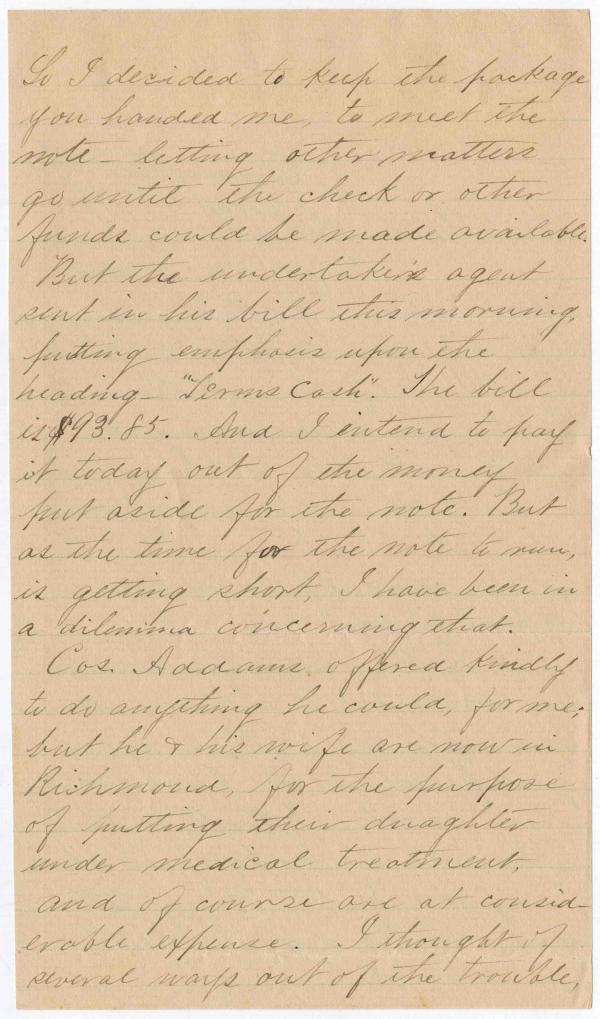 So I decided to keep the package
you handed me, to meet the
note - letting other matters
go until the check or other
funds could be made available.
But the undertaker's agent
sent in his bill this morning,
putting emphasis upon the
heading - "Terms Cash". The bill
is $93.85. And I intend to pay
it today out of the money
put aside for the note. But
as the time for the note to run,
is getting short, I have been in
a dilemma concerning that.
Cos. Addams offered kindly
to do anything he could, for me;
but he & his wife are now in
Richmond, for the purpose
of putting their duaghter
under medical treatment,
and of course are at consid-
erable expense. I thought of
several ways out of the trouble,